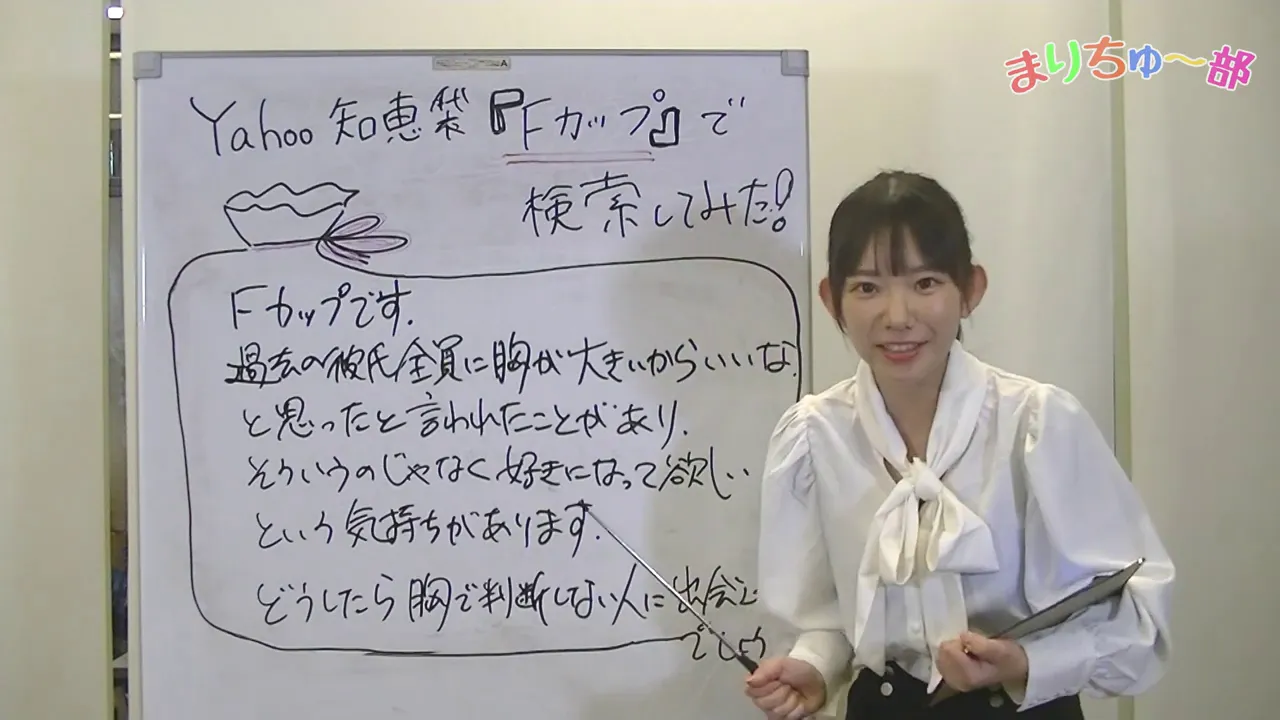 まりちゅ〜部
Yahoo知恵袋『Fカップ』で
検索してみた!
Fカップです.
過去の彼氏全員に胸が大きいからいいな.
と思ったと言われたことがあり.
そういうのじゃなく好きになって欲しい
という気持ちがあります.
どうしたら胸で判断しない人に出会え
でしょう